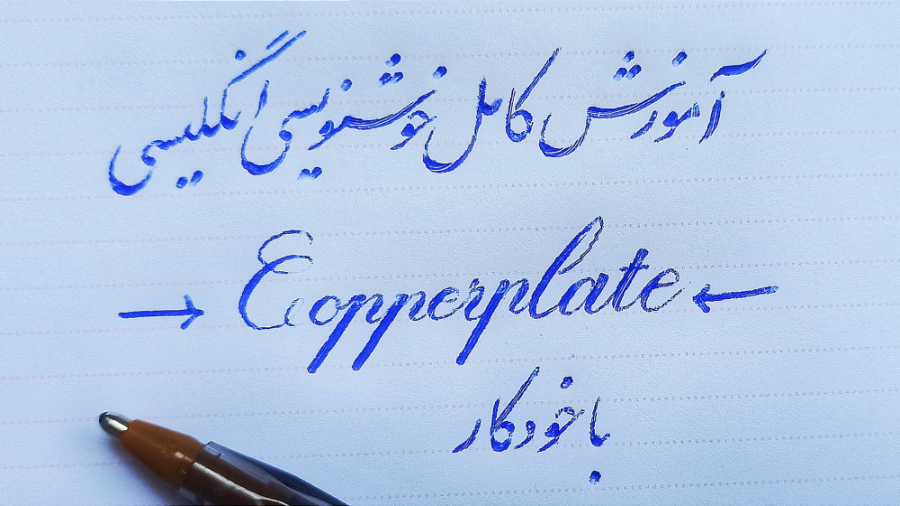 آموزش کامل خوشنویسی انگلیسی
→ Copperplate ←
با خودکار